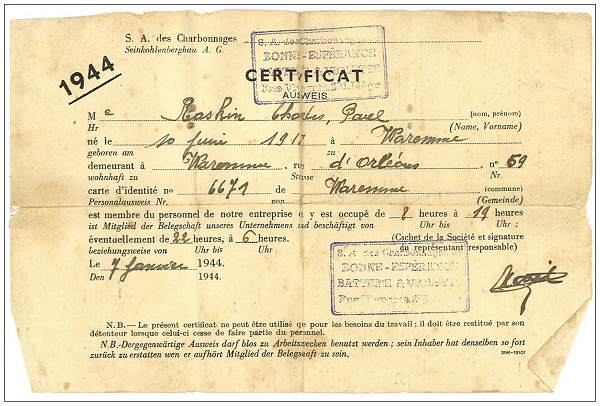 S. A. des Charbonnages
Seinkohlenberghau A. G.
S. A. des Charbonnages
BONNE-ESPÉRANCE
1944
CERTIFICAT
AUSWEIS
M e Raskin Charles, Paul (nom, prénom)
Hr (Name, Vorname)
né le 10 juin 191 à Waremme
geboren am zu
demeurant à Waremme, r d'Orléans, n° 69
wohnhaft zu Stasse Nr.
carte d'identité n° 6671 de Waremme (commune)
Personalausweis Nr. von (Gemeinde)
est membre du personnel de notre entreprise e y est occupé de 8 heures à 19 heures
ist Mitglied der Belegschaft unseres Unternehmens und beschäftigt von Uhr bis Uhr ;
éventuellement de 22 heures, à 6 heures. (Cachet de la Société et signature
beziehungsweise von Uhr bis Uhr du représentant responsable)
Le 7 Janvier 1944.
Den 1944.
S. A. des Charbonnages
BONNE-ESPÉRANCE
N. B.— Le présent certificat ne peut être utilisé qe pour les besoins du travail ; il doit être restitué par son
détenteur lorsque celui-ci cesse de faire partie du personnel.
N.B.-Dergegenwärtige Ausweis darf blos zu Arbeitszecken benutzt werden ; sein Inhaber hat denselben so fort
zurück zu erstatten wen er aufhört Mitglied der Belegseaft zu sein.